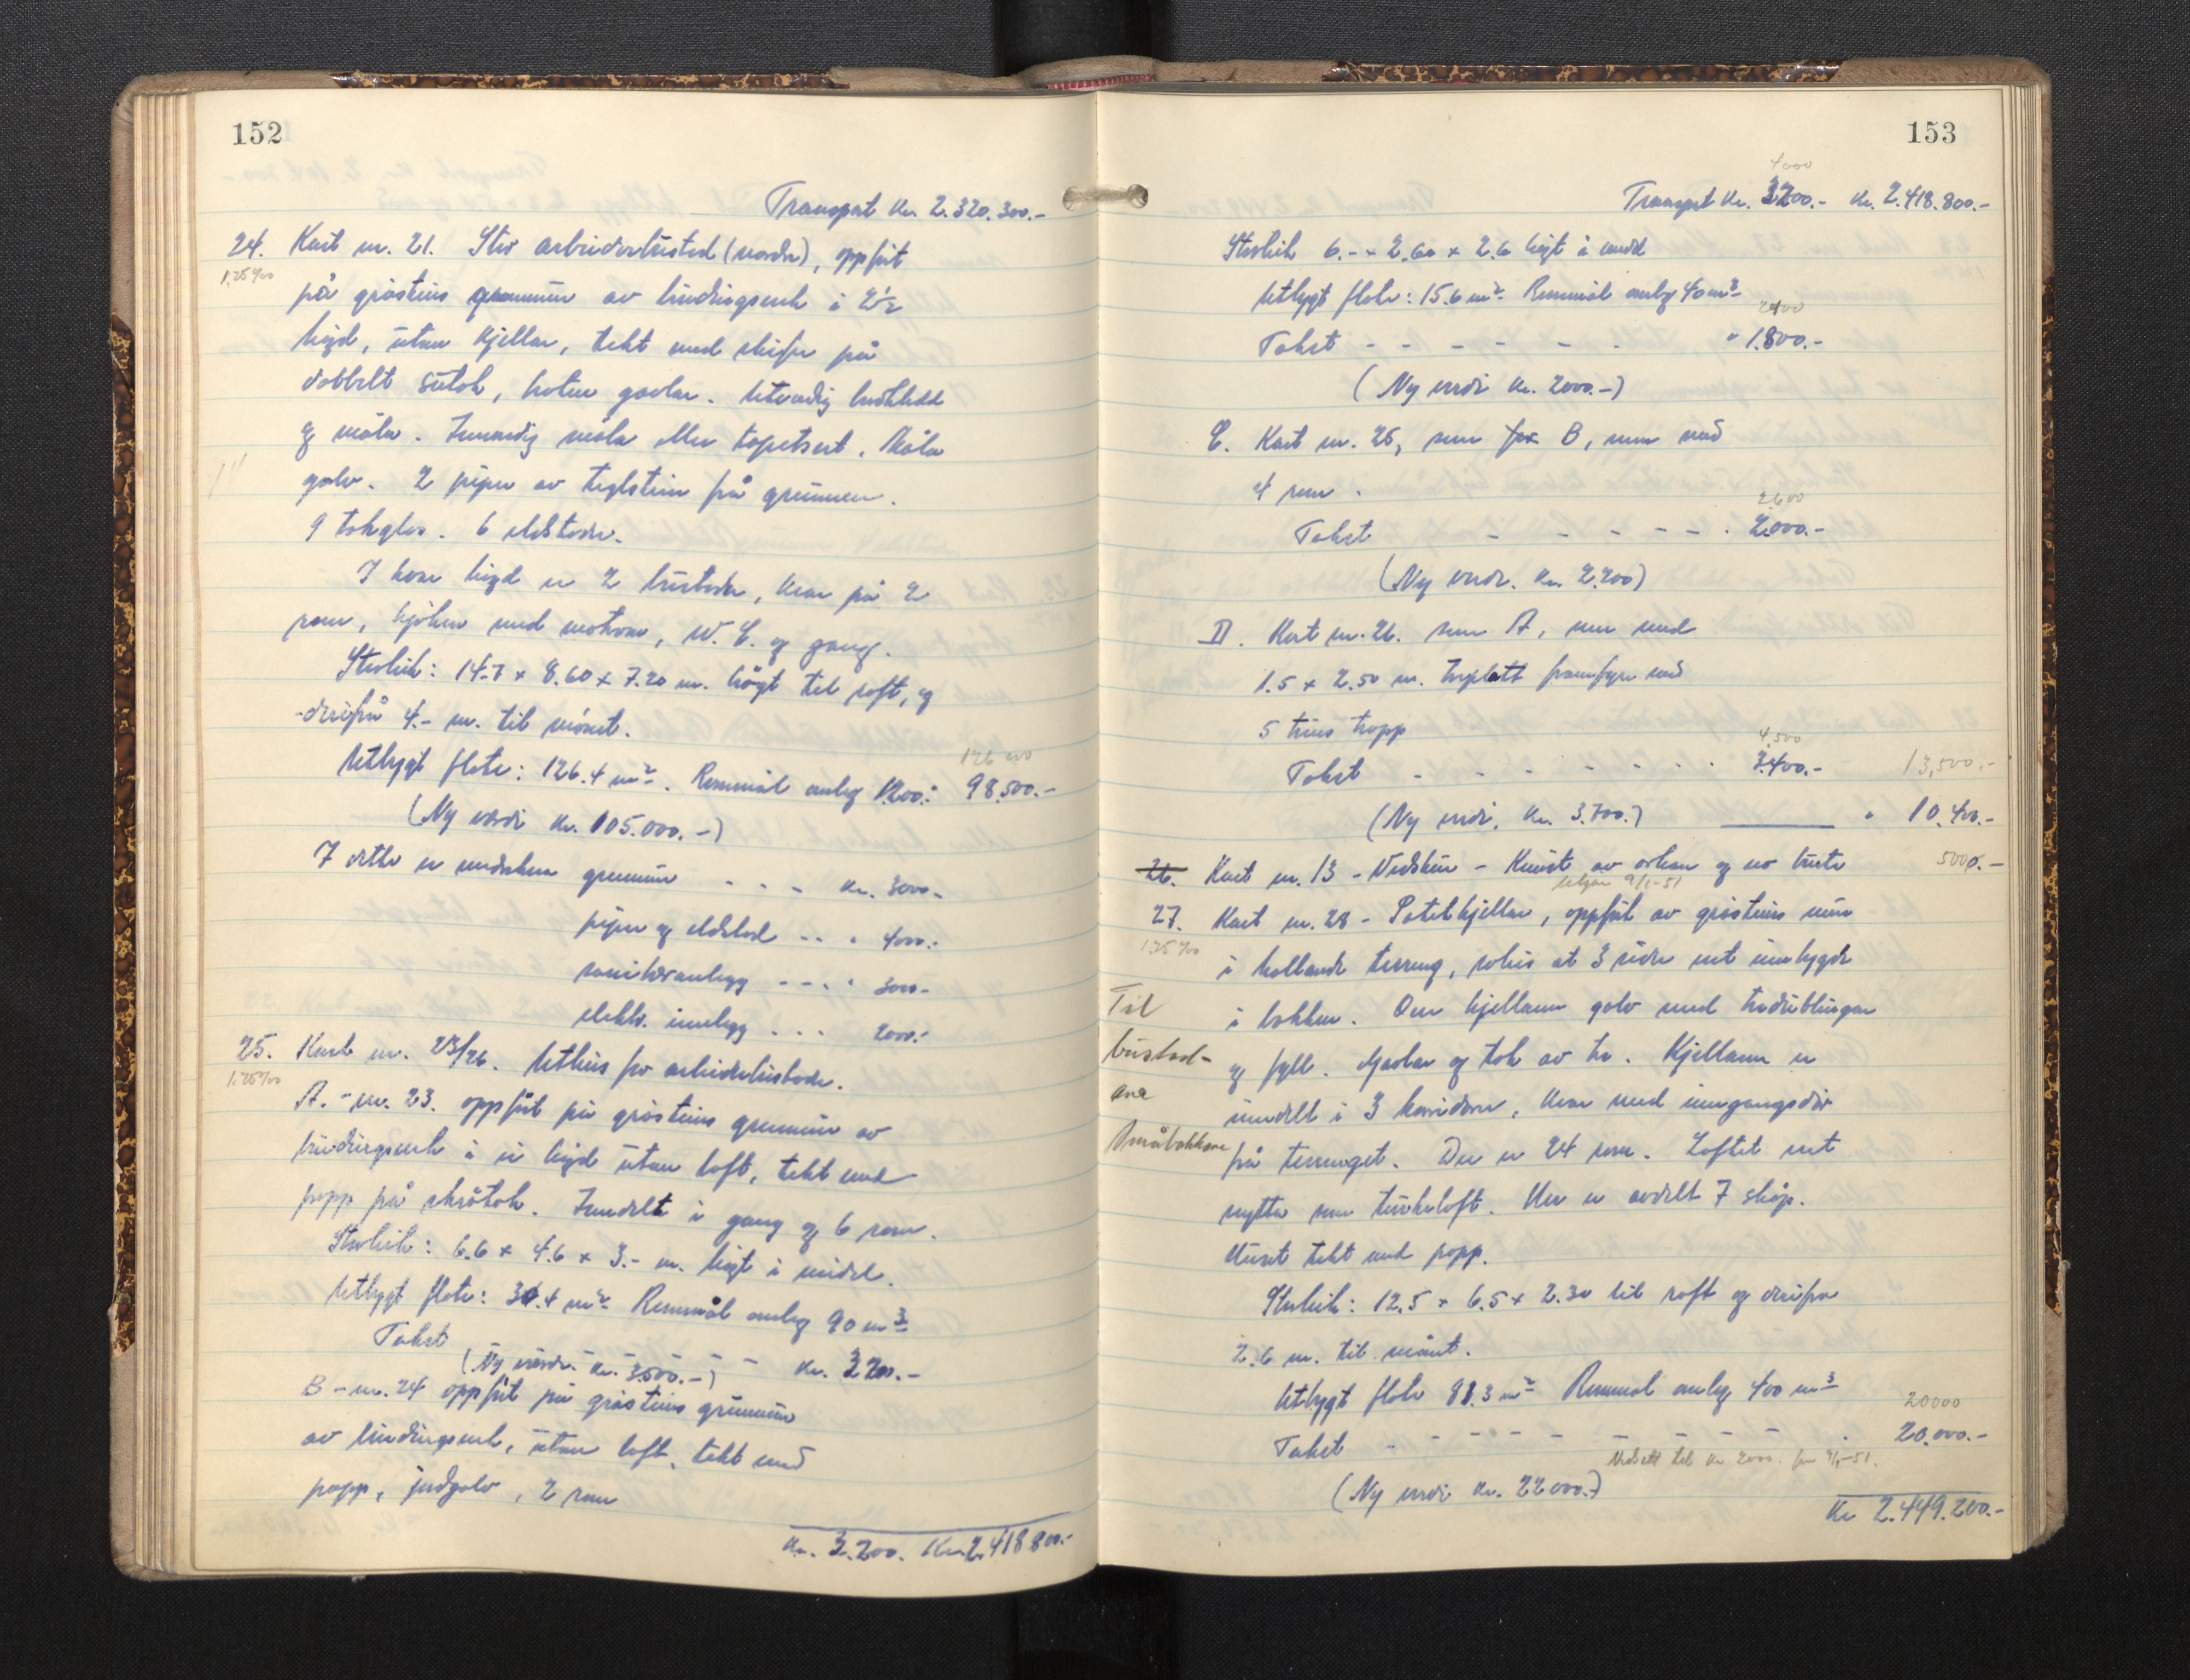 152
Transport Kr. 2.320.300.-
24. Kart nr. 21. Stor arbeidarbustad (nordre), oppført
1,25 ‰
på gråsteins grunnmur av bindingsverk i 2 1/2
høgd, utan kjellar, tekt med skifer på
dobbelt sutak, brotne gavlar. Utvendig bordkledd
og måla. Innvendig måla eller tapetsert. Måla
golv. 2 piper av teglstein frå grunnen.
9 takglas. 6 eldstader.
I kvar høgd er 2 bustader, kvar på 2
rom, kjøken med matbod, W.C. og gang.
Storleik: 14.7 x 8.60 x 7.20 m. høgt til raft, og
derifrå 4.- m. til mønet.
126 000
Utbygt flate: 126.4 m². Rommål omlag 1200.- 98.500.-
(Ny verdi kr. 105.000.-)
I dette er medrekna grunnmur - - - kr. 3000.-
piper og eldstad - - " 4000.-
sanitæranlegg - - - " 3000.-
elektr. innlegg - - - 2000.-
25. Kart nr. 23/26. Uthus for arbeidarbustader.
1,25 ‰
A. - nr. 23. oppført på gråsteins grunnmur av
bindingsverk i ei høgd utan loft, tekt med
papp på skråtak. Inndelt i gang og 6 rom.
Storleik: 6.6 x 4.6 x 3.- m. høgt i middel.
Utbygt flate: 30.4 m² Rommål omlag 90 m³
Takst - - - - kr. 3200.-
(Ny verdi kr. 3.500.-)
B - nr. 24 oppført på gråsteins grunnmur
av bindingsverk, utan loft, tekt med
papp, jordgolv, 2 rom
Kr. 3.200. Kr. 2.418.800.-
153
4000
Transport Kr. 3200.- Kr. 2.418.800.-
Storleik 6.- x 2.60 x 2.6 høgt i middel
Utbygt flate: 15.6 m² Rommål omlag 40 m³
2400
Takst - - - - - - " 1.800.-
(Ny verdi Kr. 2000.-)
C. Kart nr. 25, som for B, men med
4 rom.
2,600
Takst - - - - - - 2.000.-
(Ny verdi. Kr. 2.200)
D. Kart nr. 26. som A, men med
1.5 x 2.50 m. framfyre med
5 trins trapp
4,500
Takst - - - - - - - 3.400.- 13,500.-
(Ny verdi. Kr. 3.700.) " 10.400.-
26. Kart nr. 13 - Vedskur - Knust av orkan og no burte 5000.-
Utgår 9/1-51
27. Kart nr. 28 - Potetkjellar, oppført av gråsteins mur
1,25 ‰
i hallande terreng, soleis at 3 sider er innbygde
i bakken. Over kjellaren golv med
og fyll. Gavlar og tak av tre. Kjellaren er
inndelt i 3 korridorar, kvar med inngangsdør
på terrenget. Der er 24 rom. Loftet vert
nytta som turkeloft. Her er avdelt 7 skåp.
Huset tekt med papp.
Til
bustad-
ane
Småbakkane
Storleik: 12.5 x 6.5 x 2.30 til raft og derifrå
2.6 m. til mønet.
Utbygt flate 81.3 m² Rommål omlag 400 m³
20000
Takst - - - - - - - - - 20.000.-
Nedsett til Kr 2000. frå 9/1-51.
(Ny verdi Kr. 22000.-)
Kr 2.449.200.-